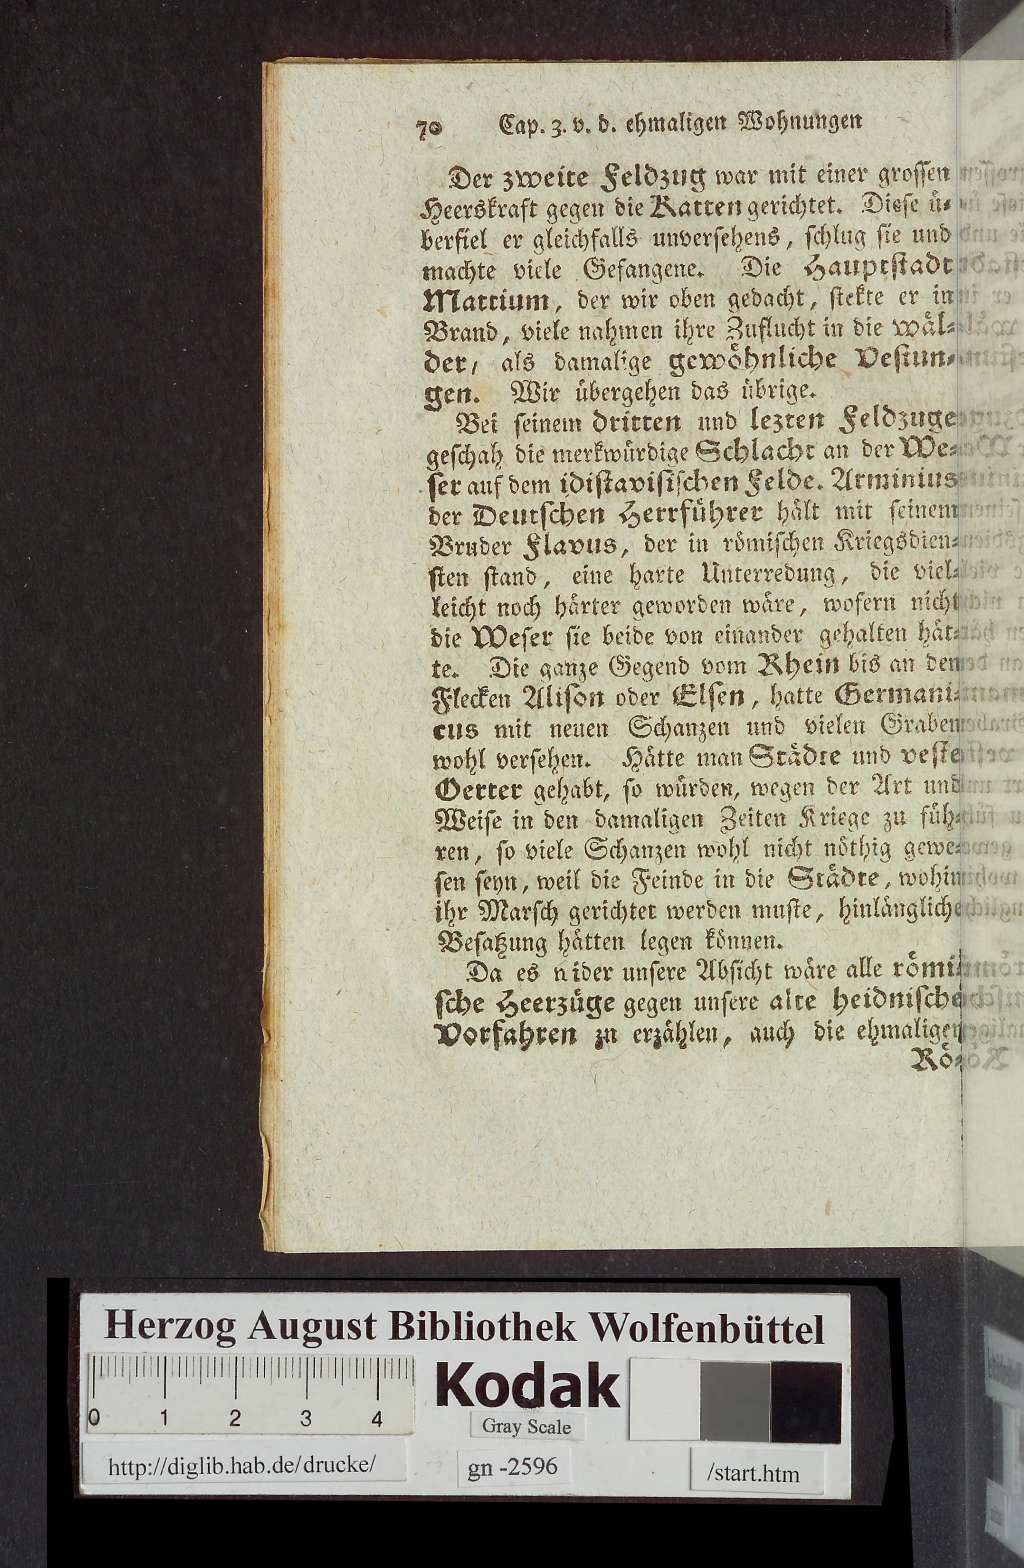 70 Cap. 3. v. d. ehmaligen Wohnungen
Der zweite Feldzug war mit einer grossen
Heerskraft gegen die Katten gerichtet. Diese ü-
berfiel er gleichfalls unversehens, schlug sie und
machte viele Gefangene. Die Hauptstadt
Mattium, der wir oben gedacht, stekte er in
Brand, viele nahmen ihre Zuflucht in die wäl-
der, als damalige gewöhnliche Vestun-
gen. Wir übergehen das übrige.
Bei seinem dritten und lezten Feldzuge
geschah die merkwürdige Schlacht an der We-
ser auf dem idistavisischen Felde. Arminius
der Deutschen Herrführer hält mit seinem
Bruder Flavus, der in römischen Kriegsdien-
sten stand, eine harte Unterredung, die viel-
leicht noch härter geworden wäre, wofern nicht
die Weser sie beide von einander gehalten hät-
te. Die ganze Gegend vom Rhein bis an den
Flecken Alison oder Elsen, hatte Germani-
cus mit neuen Schanzen und vielen Graben
wohl versehen. Hätte man Städte und veste
Oerter gehabt, so würden, wegen der Art und
Weise in den damaligen Zeiten Kriege zu füh-
ren, so viele Schanzen wohl nicht nöthig gewe-
sen seyn, weil die Feinde in die Städte, wohin
ihr Marsch gerichtet werden muste, hinlängliche
Besatzung hätten legen können.
Da es wider unsere Absicht wäre alle römi-
sche Heerzüge gegen unsere alte heidnische
Vorfahren zu erzählen, auch die ehmaligen
Rö-
Herzog August Bibliothek Wolfenbüttel
Kodak
0 1 2 3 4
Gray Scale
http://diglib.hab.de/drucke/
gn -2596
/start.htm